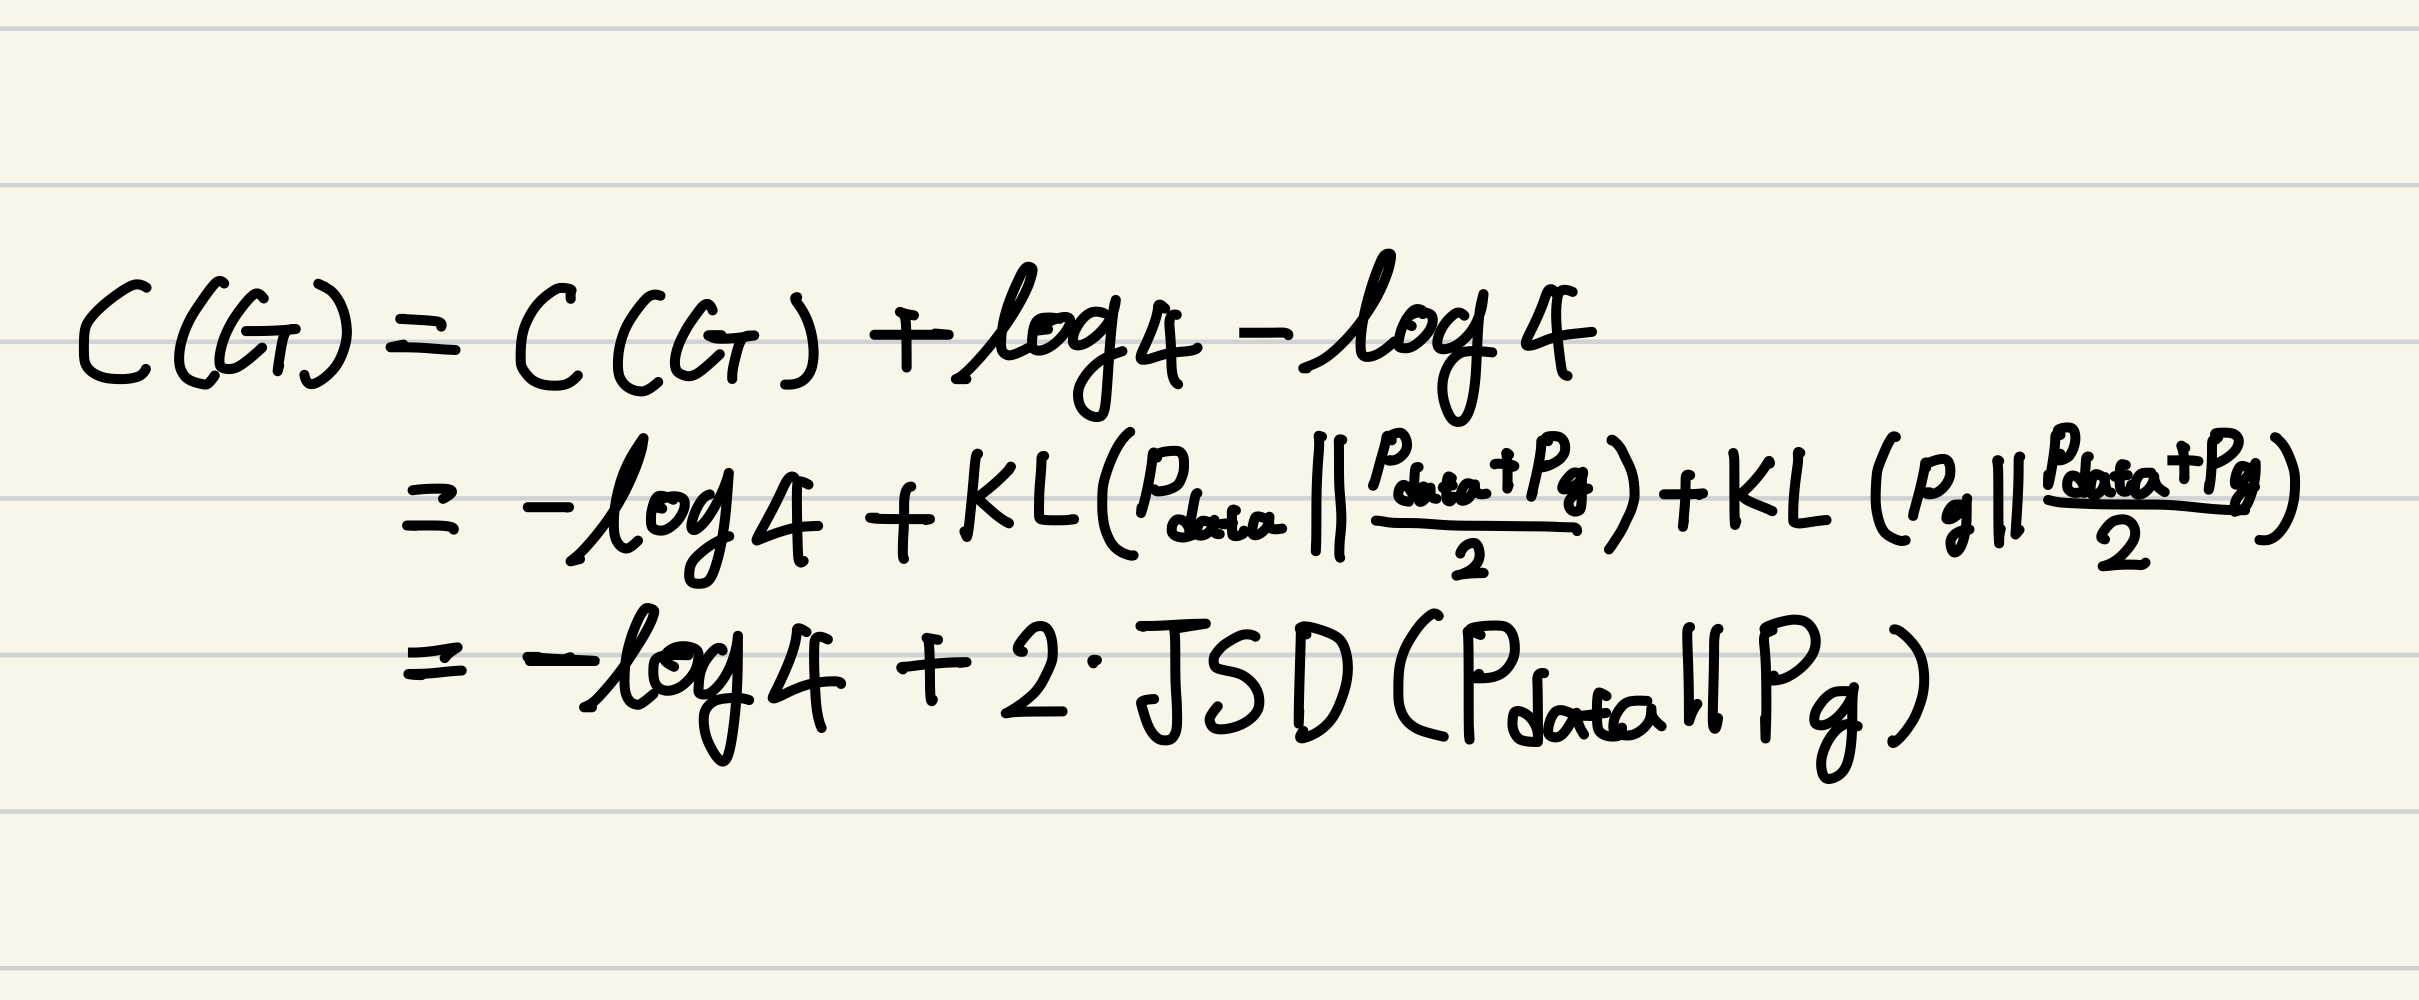 C(G) = C(G) + log 4 - log 4
= -log 4 + KL(P_data || (P_data + P_g)/2) + KL(P_g || (P_data + P_g)/2)
= -log 4 + 2 · JSD(P_data || P_g)